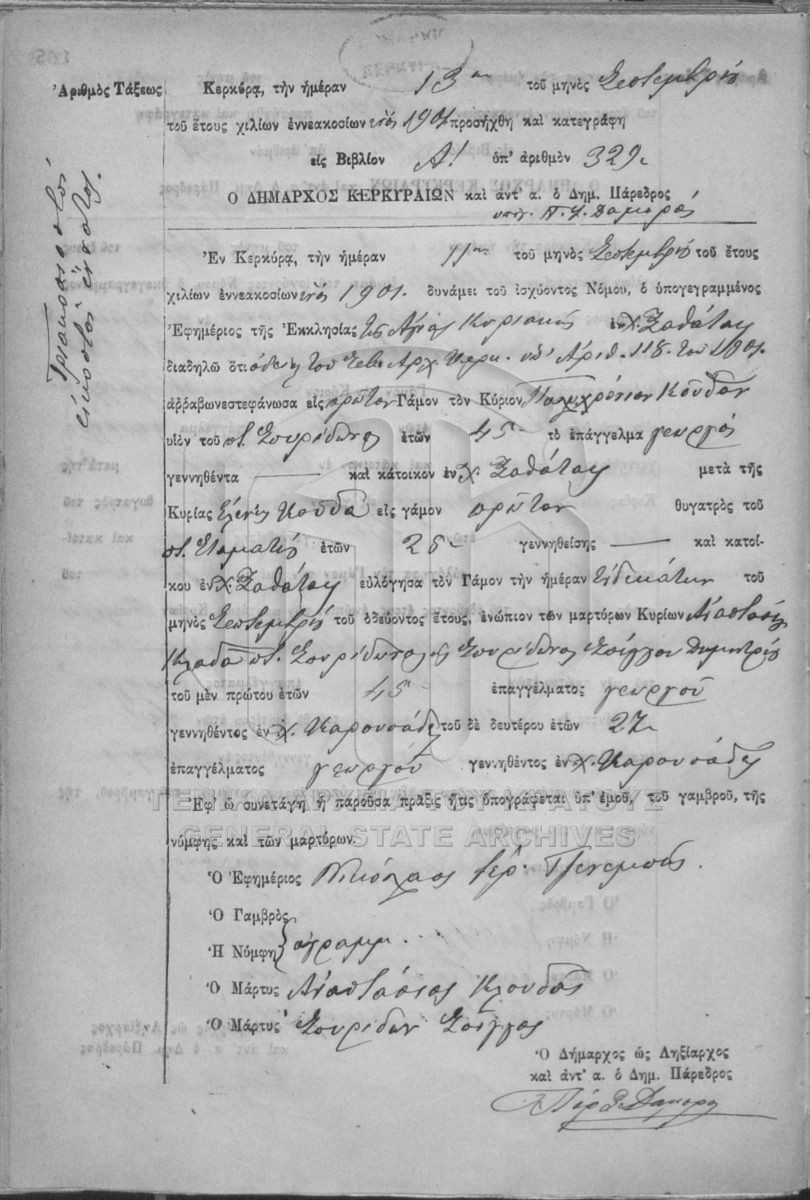 Ἀριθμὸς Τάξεως
Τριακοσιοστὸν
εἰκοστὸν ἔνατον.
Κερκύρᾳ, τὴν ἡμέραν 13ην τοῦ μηνὸς Σεπτεμβρίου
τοῦ ἔτους χιλίων ἐννεακοσίων ἑνὸς 1901 προσήχθη καὶ κατεγράφη
εἰς Βιβλίον Α! ὑπ' ἀριθμὸν 329
Ο ΔΗΜΑΡΧΟΣ ΚΕΡΚΥΡΑΙΩΝ καὶ ἀντ' α. ὁ Δημ. Πάρεδρος
υπογ. Π.
Ἐν Κερκύρᾳ, τὴν ἡμέραν 11ην τοῦ μηνὸς Σεπτεμβρίου τοῦ ἔτους
χιλίων ἐννεακοσίων ἑνὸς 1901. δυνάμει τοῦ ἰσχύοντος Νόμου, ὁ ὑπογεγραμμένος
Ἐφημέριος τῆς Ἐκκλησίας της Αγίας Κυριακῆς ἐν χ. Ξαθάταις
διαδηλῶ ὅτι ἀδείᾳ του Σεβ. Αρχ. Κερκ. υπ' Αριθ. 118. του 1901.
ἀῤῥαβωνεστεφάνωσα εἰς πρῶτον Γάμον τὸν Κύριον Πολυχρόνιον Κούδαν
υἱὸν τοῦ ποτ. Σπυρίδωνος ἐτῶν 45 τὸ ἐπάγγελμα γεωργός
γεννηθέντα — καὶ κάτοικον ἐν χ. Ξαθάταις μετὰ τῆς
Κυρίας Ελένης Κούδα εἰς γάμον πρῶτον θυγατρὸς τοῦ
ποτ. Σταματίου ἐτῶν 25 γεννηθείσης — καὶ κατοί-
κου ἐν χ. Ξαθάταις εὐλόγησα τὸν Γάμον τὴν ἡμέραν Ενδεκάτην τοῦ
μηνὸς Σεπτεμβρίου τοῦ ὁδεύοντος ἔτους, ἐνώπιον τῶν μαρτύρων Κυρίων Αναστασίου
ποτ. Σπυρίδωνος κ Σπυρίδωνος Σπίγγου Δημητρίου
τοῦ μὲν πρώτου ἐτῶν 45 ἐπαγγέλματος γεωργοῦ
γεννηθέντος ἐν χ. Καρουσάδες τοῦ δὲ δευτέρου ἐτῶν 27
ἐπαγγέλματος γεωργοῦ γεννηθέντος ἐν χ. Καρουσάδες
Ἐφ' ᾧ συνετάγη ἡ παροῦσα πρᾶξις ἥτις ὑπογράφεται ὑπ' ἐμοῦ, τοῦ γαμβροῦ, τῆς
νύμφης καὶ τῶν μαρτύρων.
ΓΕΝΙΚΑ ΑΡΧΕΙΑ ΤΟΥ ΚΡΑΤΟΥΣ
GENERAL STATE ARCHIVES
Ὁ Ἐφημέριος Νικόλαος Ιερ.
Ὁ Γαμβρὸς
Ἡ Νύμφη } αγραμμ.
Ὁ Μάρτυς Αναστάσιος
Ὁ Μάρτυς Σπυρίδων Σπίγγος
Ὁ Δήμαρχος ὡς Ληξίαρχος
καὶ ἀντ' α. ὁ Δημ. Πάρεδρος